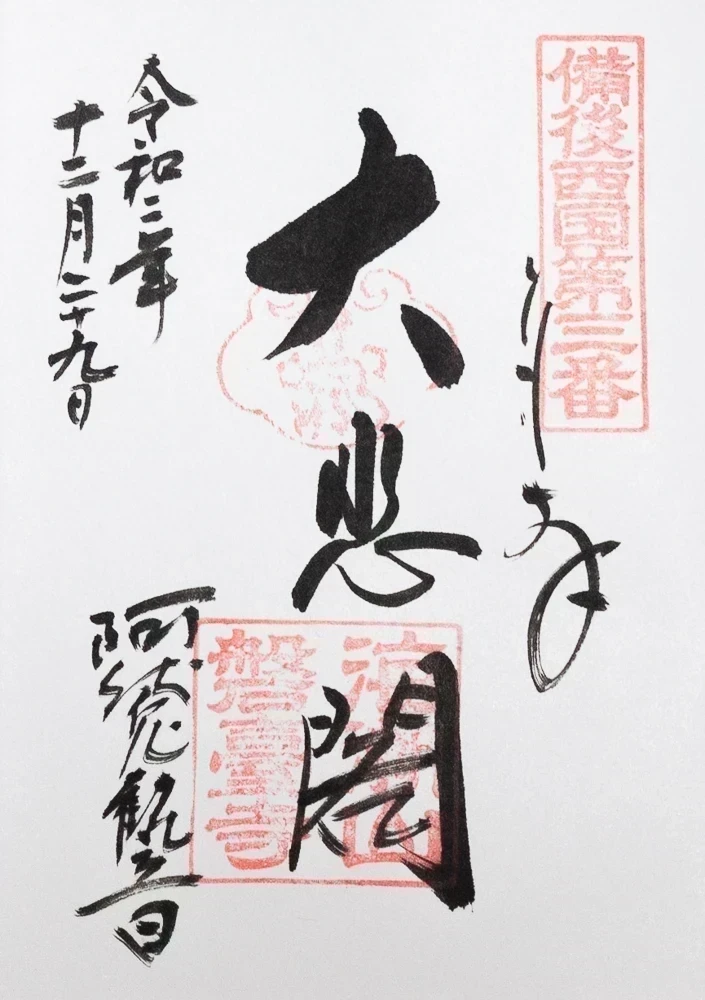 備後西国第三番
奉拝
大悲閣
磐臺寺
阿伏兎観音
令和二年
十二月二十九日